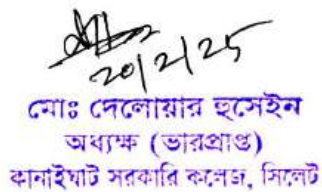 20/2/25
মোঃ দেলোয়ার হুসেইন
অধ্যক্ষ (ভারপ্রাপ্ত)
কানাইঘাট সরকারি কলেজ, সিলেট